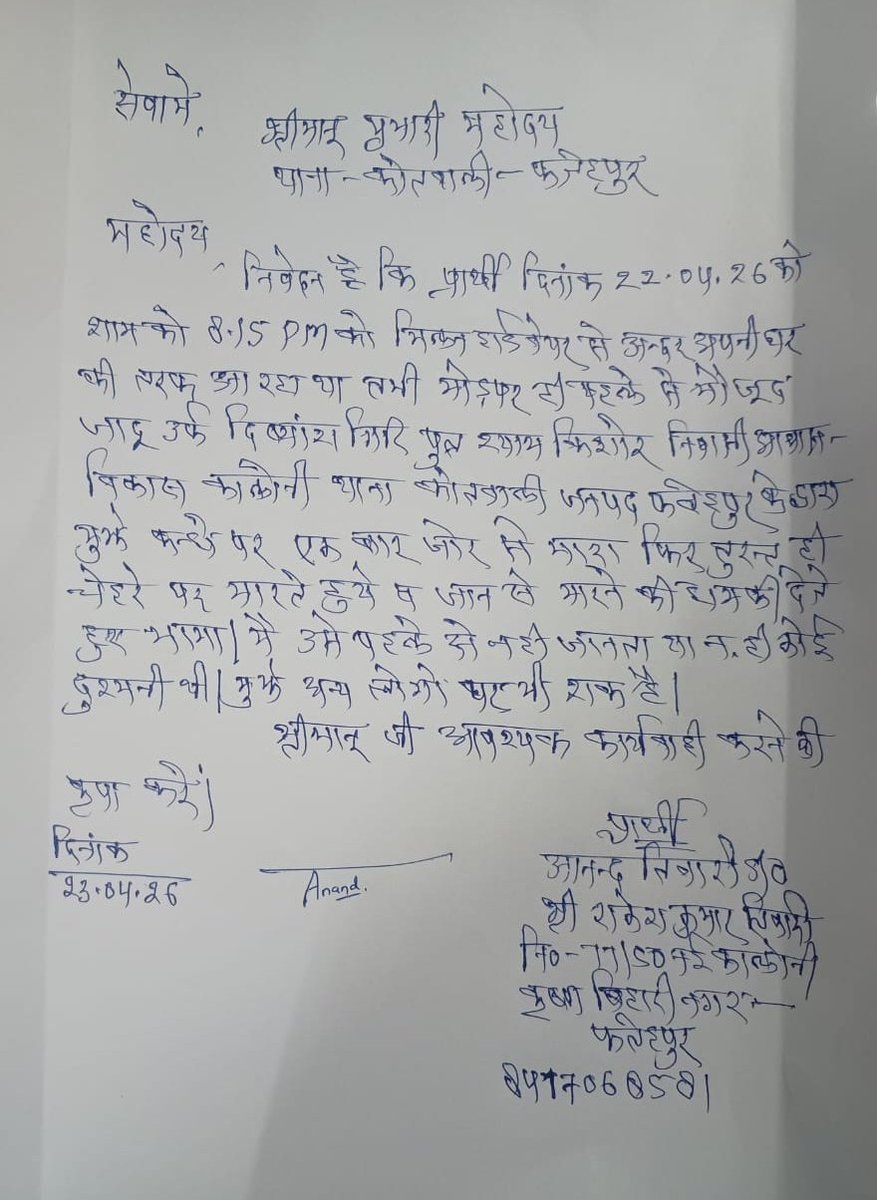 सेवामे,
श्रीमान् प्रभारी महोदय
थाना - कोतवाली - फतेहपुर
महोदय,
निवेदन है कि प्रार्थी दिनांक 22.04.26 को
शाम को 8.15 PM को हार्डवेयर से अन्दर अपनी घर
की तरफ आ रहा था तभी मोड़पर ही पहले से मौजूद
जादू उर्फ दिव्यांश गिरि पुत्र श्याम किशोर निवासी आवास-
विकास कालोनी थाना कोतवाली जनपद फतेहपुर के द्वारा
मुझे कन्धे पर एक बार जोर से मारा फिर तुरन्त ही
चेहरे पर मारते हुये व जान से मारने की धमकी देते
हुए भागा। मै उसे पहले से नही जानता था न ही कोई
दुश्मनी थी। मुझे अन्य लोगो पर भी शक है।
श्रीमान् जी आवश्यक कार्यवाही करने की
कृपा करें।
प्रार्थी
दिनांक
23.04.26
Anand.
आनन्द तिवारी S/O
श्री राकेश कुमार तिवारी
नि0- नई कालोनी
कृष्ण बिहारी नगर -
फतेहपुर
8417068581